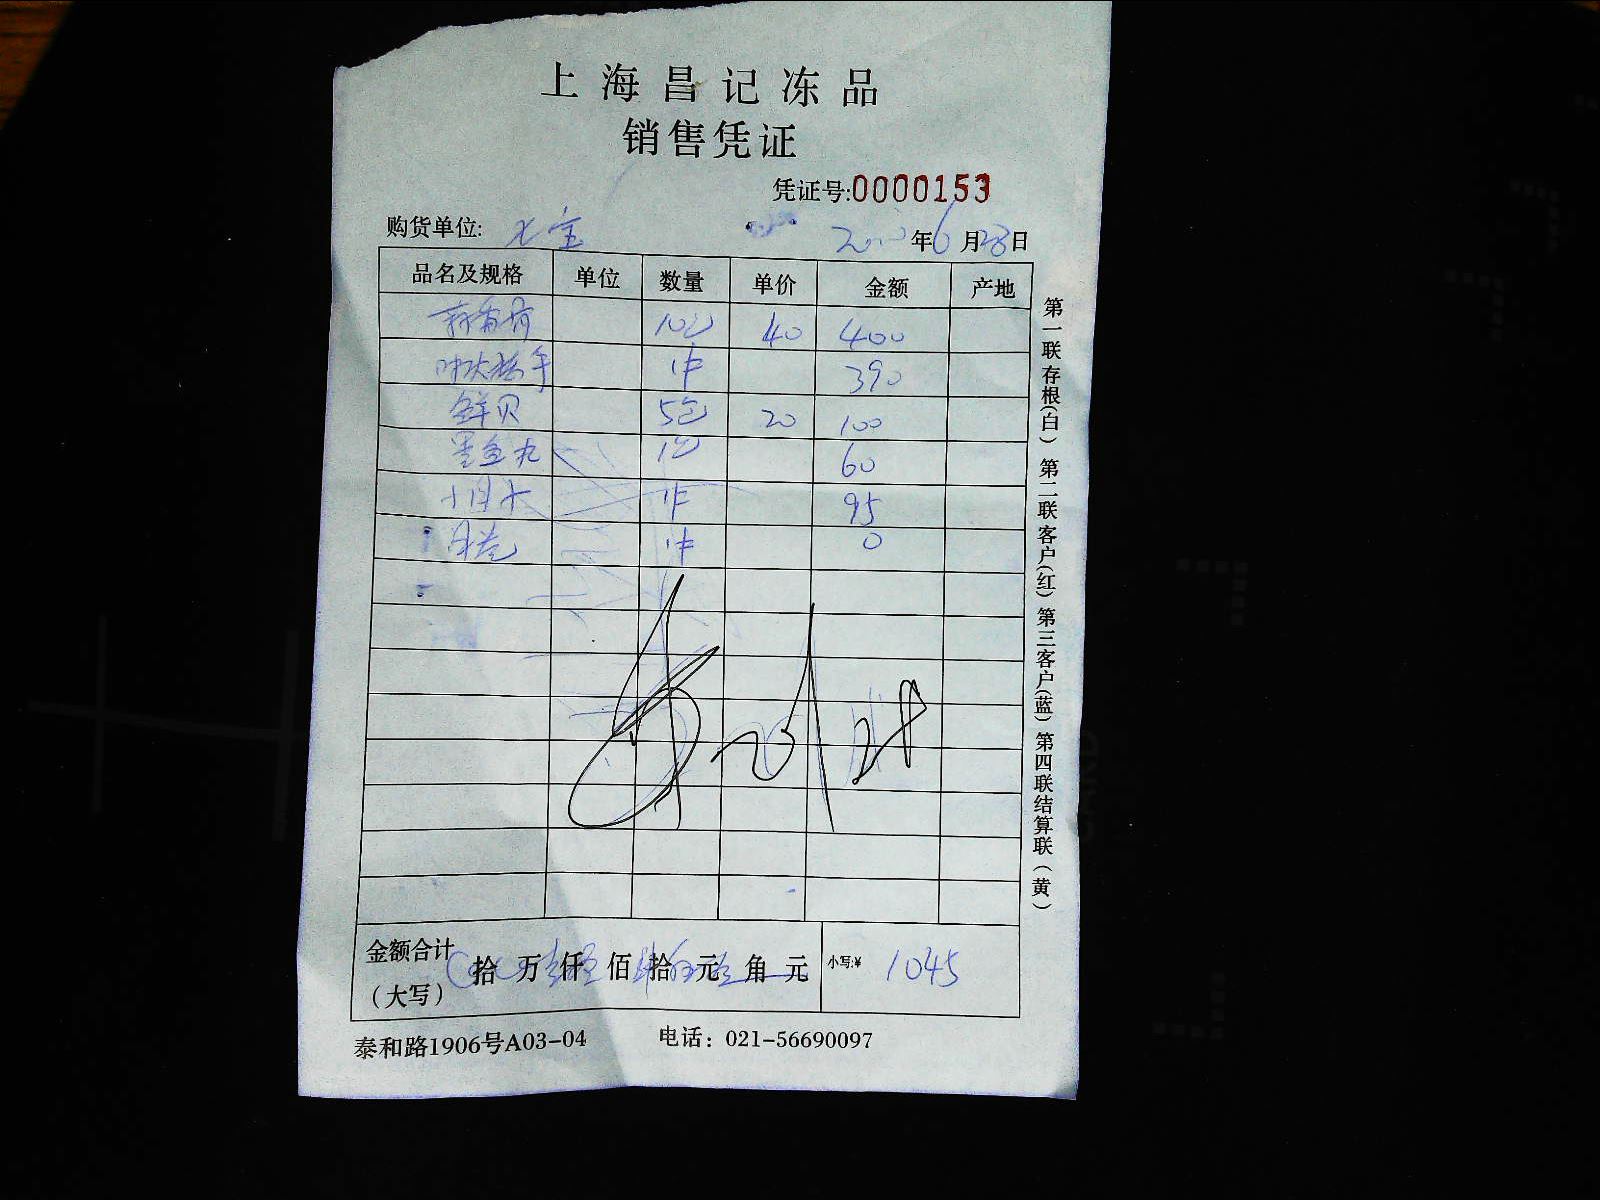 上海昌记冻品
销售凭证
凭证号:0000153
购货单位: 七宝 年6月23日
品名及规格 单位 数量 单价 金额 产地
10包 40 400
1件 390
鲜贝 5包 20 100
墨鱼丸 1包 60
1件 95
1件 0
金额合计(大写) 拾 万 仟 佰 拾 元 角 元 小写:¥ 1045
泰和路1906号A03-04 电话：021-56690097
第一联存根(白) 第二联客户(红) 第三客户(蓝) 第四联结算联(黄)